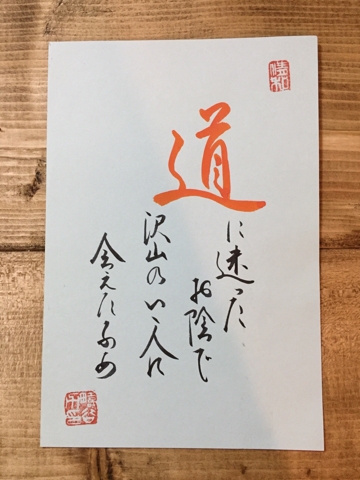 道
に迷った
お陰で
沢山のいい人に
会えたなあ